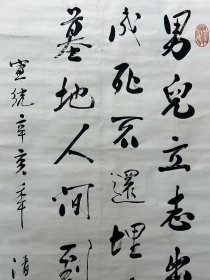 男兒立志出
成死不還埋
墓地人間到
宣統辛亥年 清